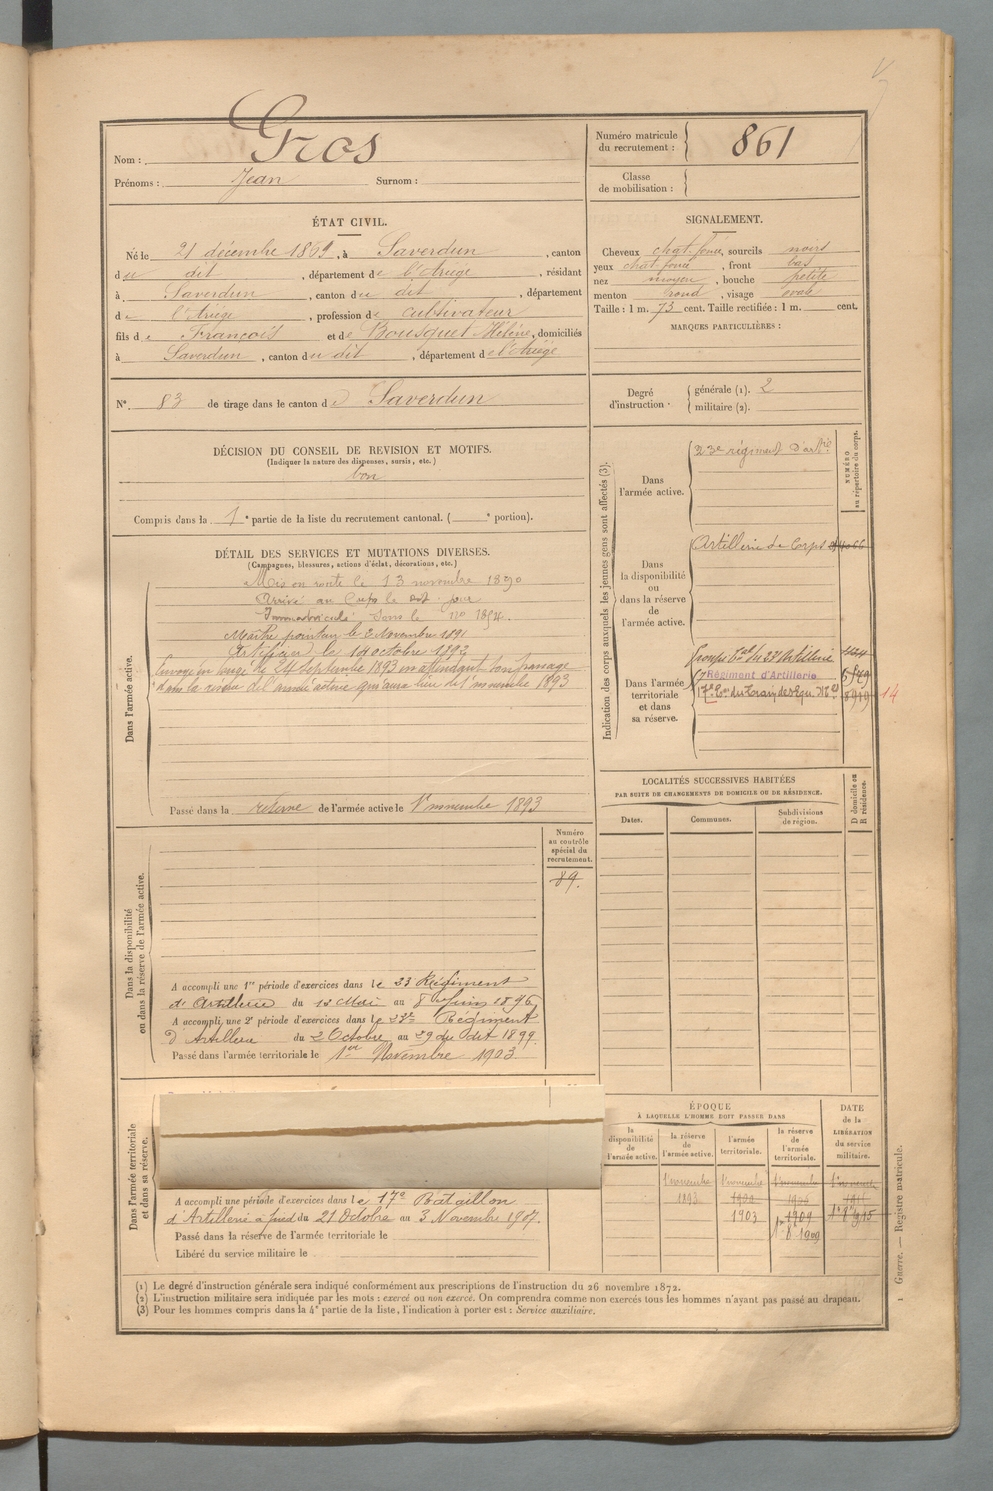 Gros
Nom :
Prénoms : Jean Surnom :
Numéro matricule du recrutement : 861
Classe de mobilisation :
ÉTAT CIVIL.
Né le 21 décembre 1869, à Saverdun, canton
du dit, département de l'Ariège, résidant
à Saverdun, canton du dit, département
de l'Ariège, profession de cultivateur
fils de François et de Bousquet Hélène, domiciliés
à Saverdun, canton du dit, département de l'Ariège
N° 83 de tirage dans le canton de Saverdun
SIGNALEMENT.
Cheveux chat. foncé, sourcils noirs
yeux chat foncé, front bas
nez moyen, bouche petite
menton rond, visage oval
Taille : 1 m. 73 cent. Taille rectifiée : 1 m. cent.
MARQUES PARTICULIÈRES :
Degré d'instruction. générale (1). 2
militaire (2).
DÉCISION DU CONSEIL DE REVISION ET MOTIFS.
(Indiquer la nature des dispenses, sursis, etc.)
bon
Compris dans la 1e partie de la liste du recrutement cantonal. ( e portion).
DÉTAIL DES SERVICES ET MUTATIONS DIVERSES.
(Campagnes, blessures, actions d'éclat, décorations, etc.)
Dans l'armée active.
Mis en route le 13 novembre 1890
Arrivé au Corps le dit jour
Immatriculé sous le no
Maître pointeur le 2 Novembre 1891
Artificier le 14 octobre 1892
Envoyé en congé le 24 Septembre 1893 en attendant son passage
dans la réserve de l'armée active qui aura lieu le 1er novembre 1893
Passé dans la réserve de l'armée active le 1er novembre 1893
Indication des corps auxquels les jeunes gens sont affectés (3).
NUMÉRO au répertoire du corps.
Dans l'armée active.
23e régiment d'artie
Dans la disponibilité ou dans la réserve de l'armée active.
Artillerie de Corps
Dans l'armée territoriale et dans sa réserve.
Groupe Tal du 23e Artillerie
Régiment d'Artillerie
17e Eon du Train des Equ. Mres
14
LOCALITÉS SUCCESSIVES HABITÉES
PAR SUITE DE CHANGEMENTS DE DOMICILE OU DE RÉSIDENCE.
Dates. Communes. Subdivisions de région. D domicile ou R résidence.
Numéro au contrôle spécial du recrutement.
89.
Dans la disponibilité ou dans la réserve de l'armée active.
A accompli une 1re période d'exercices dans le 23 Régiment
d'Artillerie du 12 Mai au 8 Juin 1896
A accompli une 2e période d'exercices dans le 23e Régiment
d'Artillerie du 2 Octobre au 29 du dit 1899
Passé dans l'armée territoriale le 1er Novembre 1903
Dans l'armée territoriale et dans sa réserve.
A accompli une période d'exercices dans le 17e Bataillon
d'Artillerie à pied du 21 Octobre au 3 Novembre 1907.
Passé dans la réserve de l'armée territoriale le
Libéré du service militaire le
ÉPOQUE
À LAQUELLE L'HOMME DOIT PASSER DANS
la disponibilité de l'armée active. la réserve de l'armée active. l'armée territoriale. la réserve de l'armée territoriale.
DATE de la LIBÉRATION du service militaire.
1er novembre 1er novembre 1er novembre 1er novembre
1893
1903 1909
Guerre. — Registre matricule.
(1) Le degré d'instruction générale sera indiqué conformément aux prescriptions de l'instruction du 26 novembre 1872.
(2) L'instruction militaire sera indiquée par les mots : exercé ou non exercé. On comprendra comme non exercés tous les hommes n'ayant pas passé au drapeau.
(3) Pour les hommes compris dans la 4e partie de la liste, l'indication à porter est : Service auxiliaire.